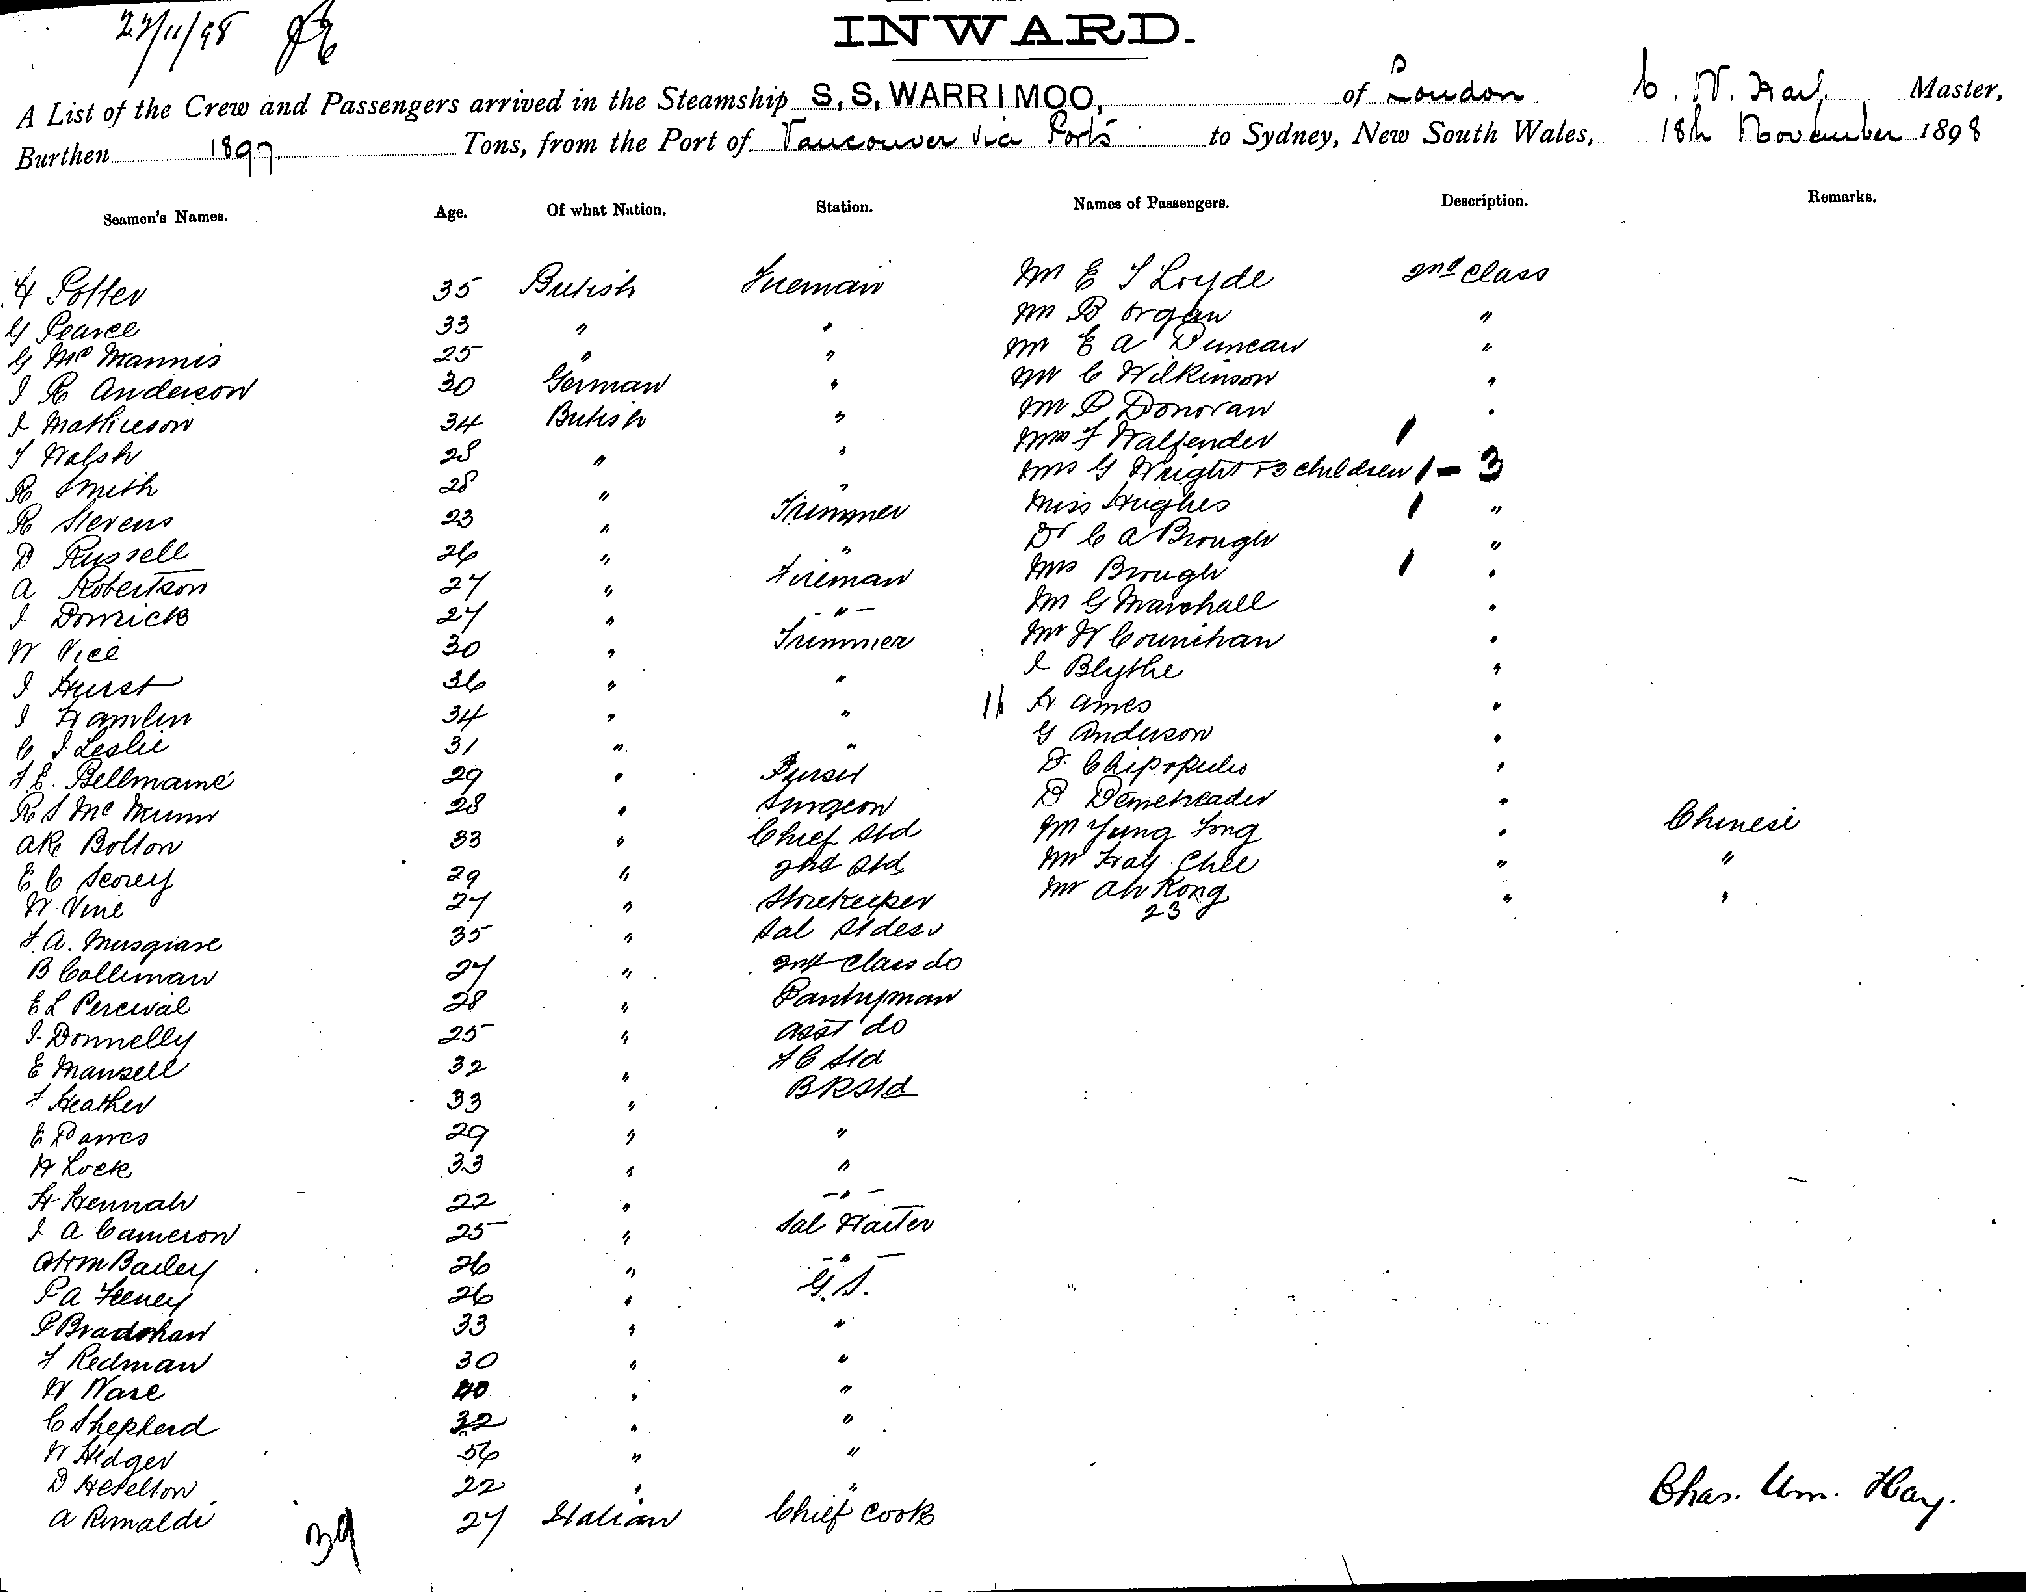 22/11/98
INWARD.
A List of the Crew and Passengers arrived in the Steamship S.S. WARRIMOO, of London C. W. Hay, Master,
Burthen 1897 Tons, from the Port of Vancouver via Ports to Sydney, New South Wales, 18th November 1898
Seamen's Names. Age. Of what Nation. Station. Names of Passengers. Description. Remarks.
H Potter 35 British Fireman Mr E S Loyde 2nd Class
G Pearce 33 " " Mr B Organ "
G McMannis 25 " " Mr E A Duncan "
J R Anderson 30 German " Mr C Wilkinson "
J Mathieson 34 British " Mr P Donovan "
T Walsh 28 " " Mrs F Walfender 1
R Smith 28 " " Mrs G Wright + 3 children 1 - 3
R Stevens 23 " Trimmer Miss Hughes 1 "
D Russell 26 " " Dr C A Brough "
A Robertson 27 " Fireman Mrs Brough 1 "
J Dorrick 27 " - " - Mr G Marshall "
W Vice 30 " Trimmer Mr W Counihan "
J Hurst 36 " " J Blythe "
J Hamlin 34 " " 16 H Ames "
C J Leslie 31 " " G Anderson "
F E. Bellmaine 29 " Purser D. "
R S McMunn 28 " Surgeon D "
A R Bolton 33 " Chief Std Mr Yung Fong " Chinese
E C Scorey 29 " 2nd Std Mr Hay Chee " "
W Vine 27 " Storekeeper Mr Ah Kong " "
23
F. A. Musgrave 35 " Sal Stdess
B Colliman 27 " 2nd Class do
E L Percival 28 " Pantryman
J. Donnelly 25 " Asst do
E Mansell 32 " F C Std
F Heather 33 " B R Std
E Dawes 29 " "
H Lock 33 " "
H Hennah 22 " - " -
J A Cameron 25 " Sal Waiter
Bailey 26 " - " -
P A Feeney 26 " G. S.
P Bradshaw 33 " "
F Redman 30 " "
W Ware 40 " "
C Shepherd 32 " "
W Hedger 56 " "
D Heselton 22 " "
A Rinaldi 27 Italian Chief Cook
39
Chas. Wm. Hay.